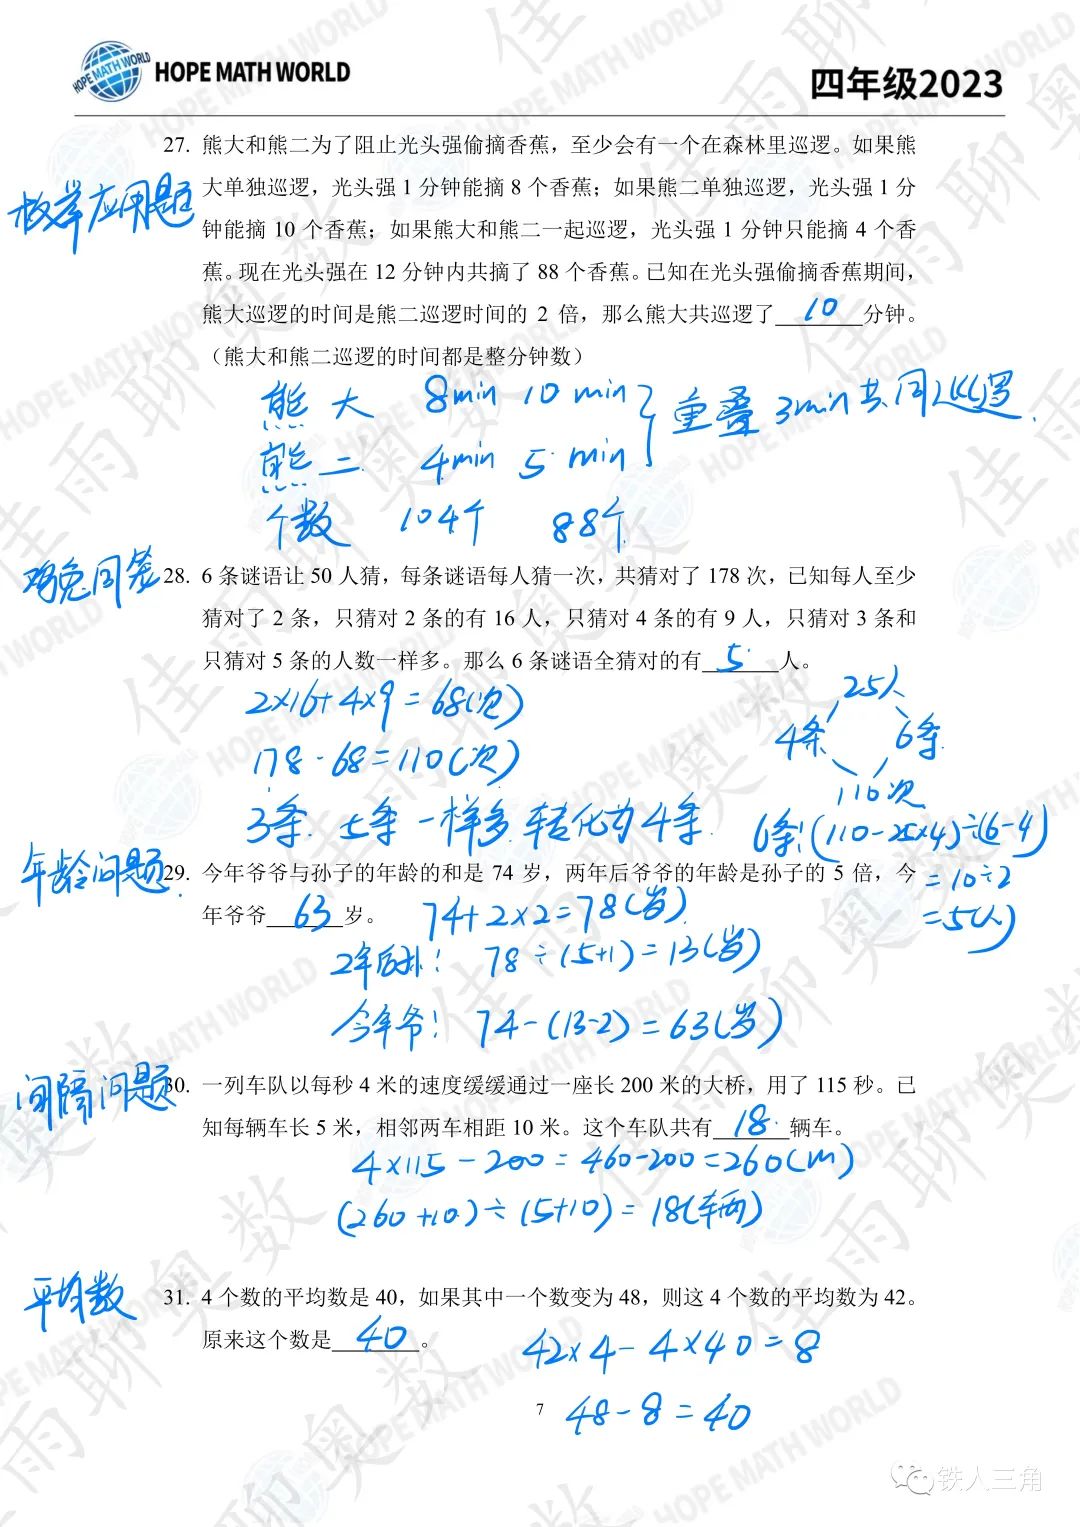 HOPE MATH WORLD
四年级2023
27. 熊大和熊二为了阻止光头强偷摘香蕉，至少会有一个在森林里巡逻。如果熊
大单独巡逻，光头强 1 分钟能摘 8 个香蕉；如果熊二单独巡逻，光头强 1 分
枚举应用题
钟能摘 10 个香蕉；如果熊大和熊二一起巡逻，光头强 1 分钟只能摘 4 个香
蕉。现在光头强在 12 分钟内共摘了 88 个香蕉。已知在光头强偷摘香蕉期间，
熊大巡逻的时间是熊二巡逻时间的 2 倍，那么熊大共巡逻了 10 分钟。
（熊大和熊二巡逻的时间都是整分钟数）
熊大 8min 10 min
重叠 3min共同巡逻.
熊二 4min 5 min
个数 104个 88个
鸡兔同笼
28. 6 条谜语让 50 人猜，每条谜语每人猜一次，共猜对了 178 次，已知每人至少
猜对了 2 条，只猜对 2 条的有 16 人，只猜对 4 条的有 9 人，只猜对 3 条和
只猜对 5 条的人数一样多。那么 6 条谜语全猜对的有 5 人。
2×16+4×9=68(次)
25人
4条 6条
178-68=110(次)
110次
3条. 5条一样多. 转化为4条.
6条:(110-25×4)÷(6-4)
=10÷2
=5(人)
年龄问题.
29. 今年爷爷与孙子的年龄的和是 74 岁，两年后爷爷的年龄是孙子的 5 倍，今
年爷爷 63 岁。
74+2×2=78(岁)
2年后孙: 78÷(5+1)=13(岁)
今年爷: 74-(13-2)=63(岁)
间隔问题
30. 一列车队以每秒 4 米的速度缓缓通过一座长 200 米的大桥，用了 115 秒。已
知每辆车长 5 米，相邻两车相距 10 米。这个车队共有 18 辆车。
4×115-200=460-200=260(m)
(260+10)÷(5+10)=18(辆)
平均数
31. 4 个数的平均数是 40，如果其中一个数变为 48，则这 4 个数的平均数为 42。
原来这个数是 40 。
42×4-4×40=8
48-8=40
7
铁人三角
佳雨聊奥数
HOPE MATH WORLD